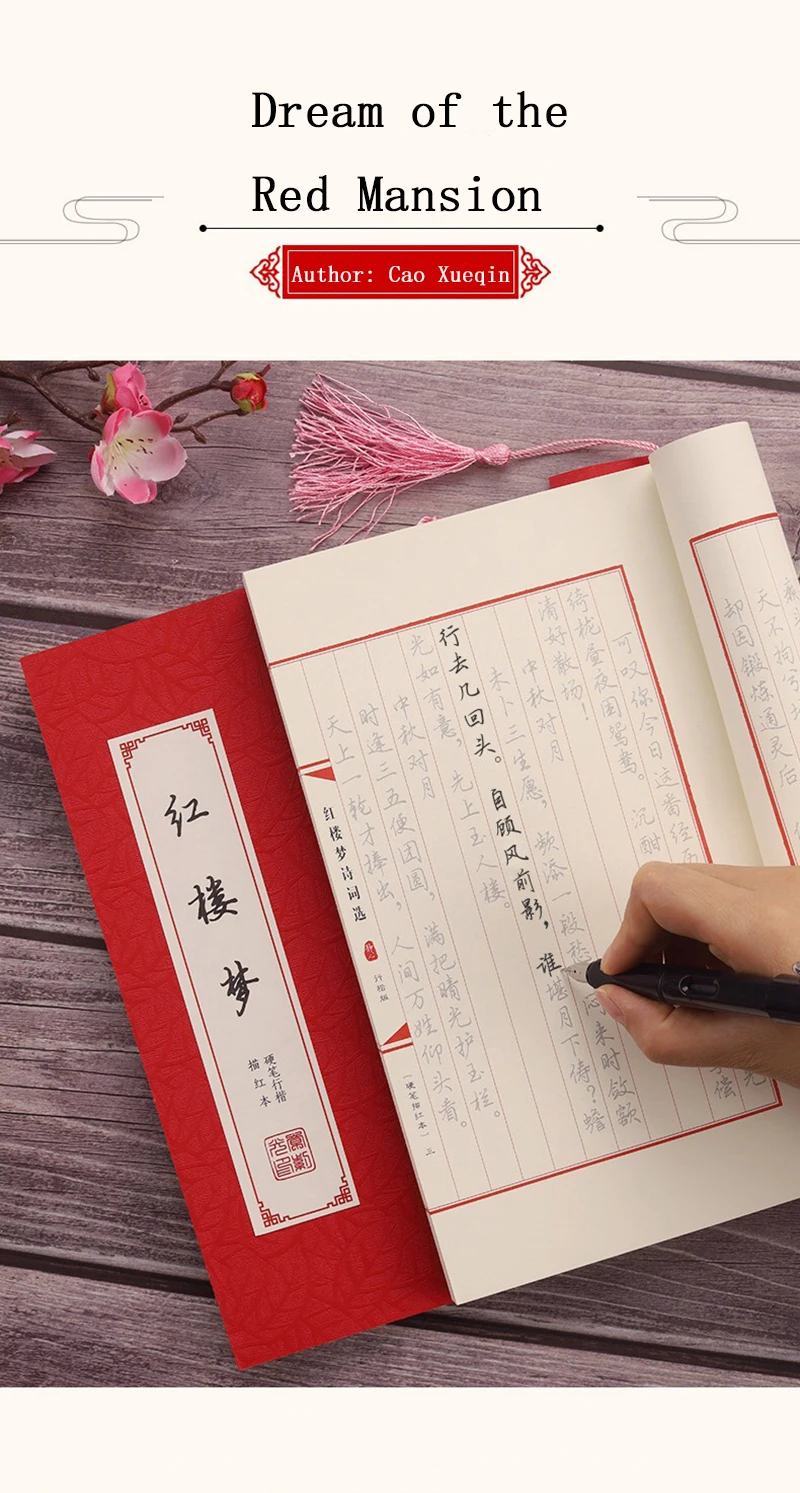 Dream of the
Red Mansion
Author: Cao Xueqin
天不拘兮
却因锻炼通灵后
可叹你今日这番经
绮栊昼夜困鸳鸯。沉酣
清好散场!
中秋对月
未卜三生愿,频添一段愁。闷来时敛额
行去几回头。自顾风前影,谁堪月下俦?蟾
光如有意,先上玉人楼。
中秋对月
时逢三五便团圆,满把晴光护玉栏。
天上一轮才捧出,人间万姓仰头看。
红楼梦诗词选
行楷版
(硬笔描红本) 三
红楼梦
硬笔行楷
描红本